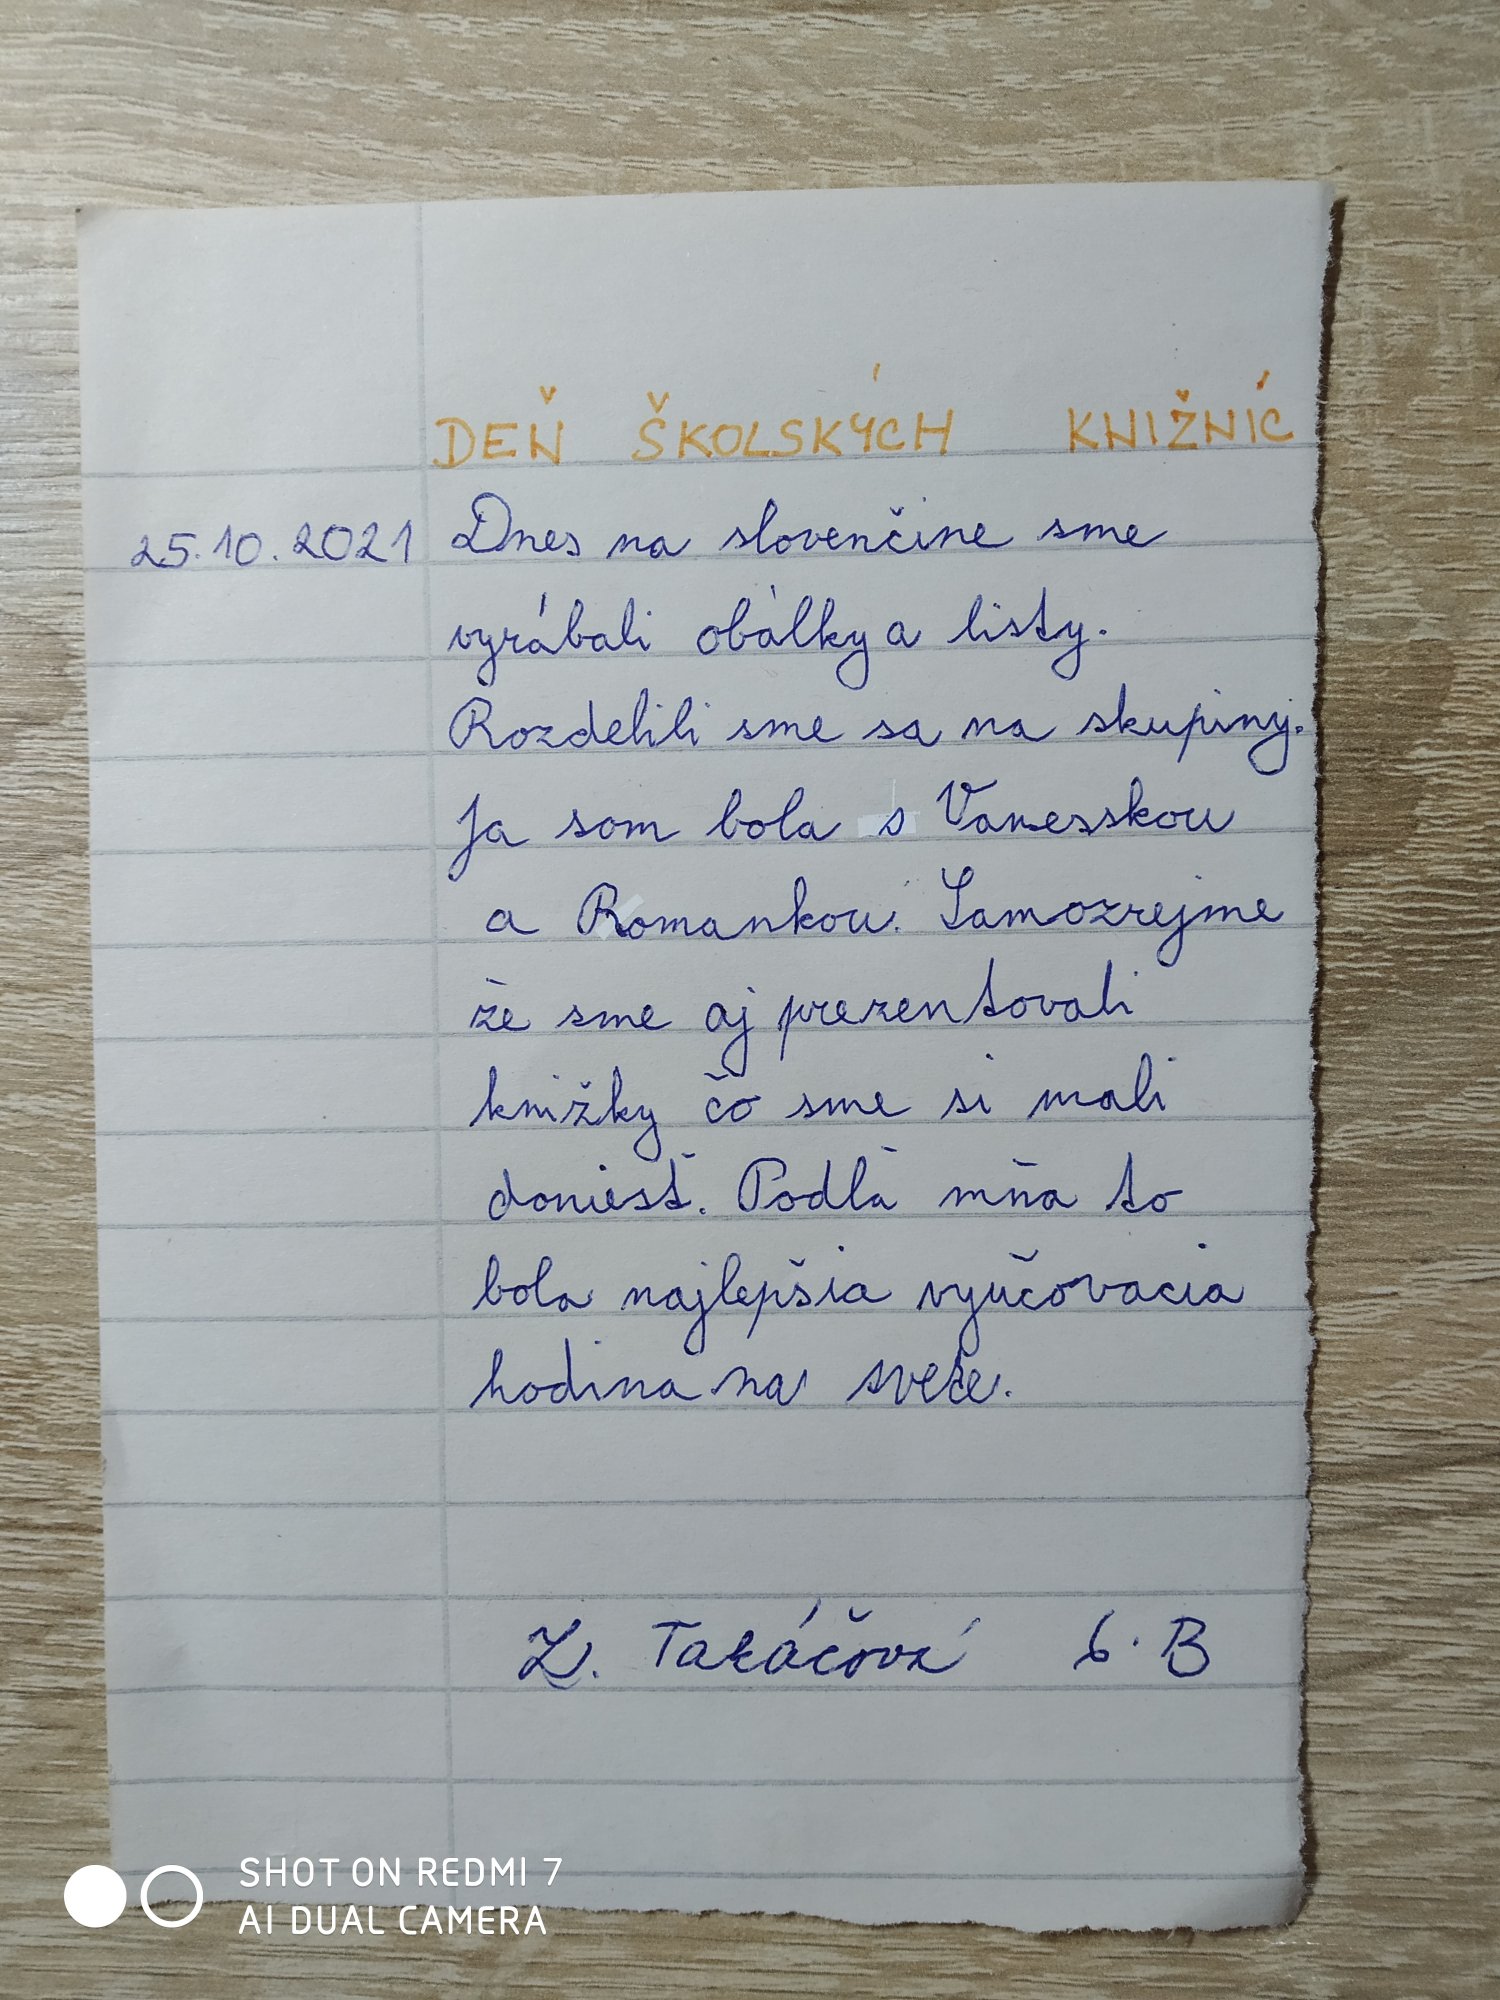 DEŇ ŠKOLSKÝCH KNIŽNÍC
25.10.2021 Dnes na slovenčine sme
vyrábali obálky a listy.
Rozdelili sme sa na skupiny.
Ja som bola s Vanesskou
a Romankou. Samozrejme
že sme aj prezentovali
knižky čo sme si mali
doniesť. Podľa mňa to
bola najlepšia vyučovacia
hodina na svete.
Z. Takáčová 6.B
SHOT ON REDMI 7
AI DUAL CAMERA